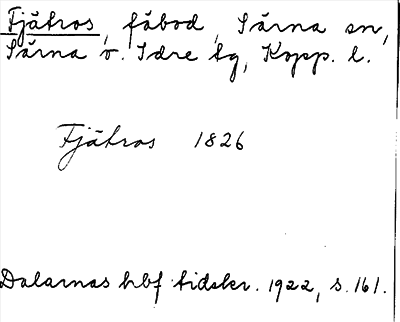 Fjätros, fäbod, Särna sn,
Särna o. Idre tg, Kopp. l.
Fjätros 1826
Dalarnas hbf tidskr. 1922, s. 161.